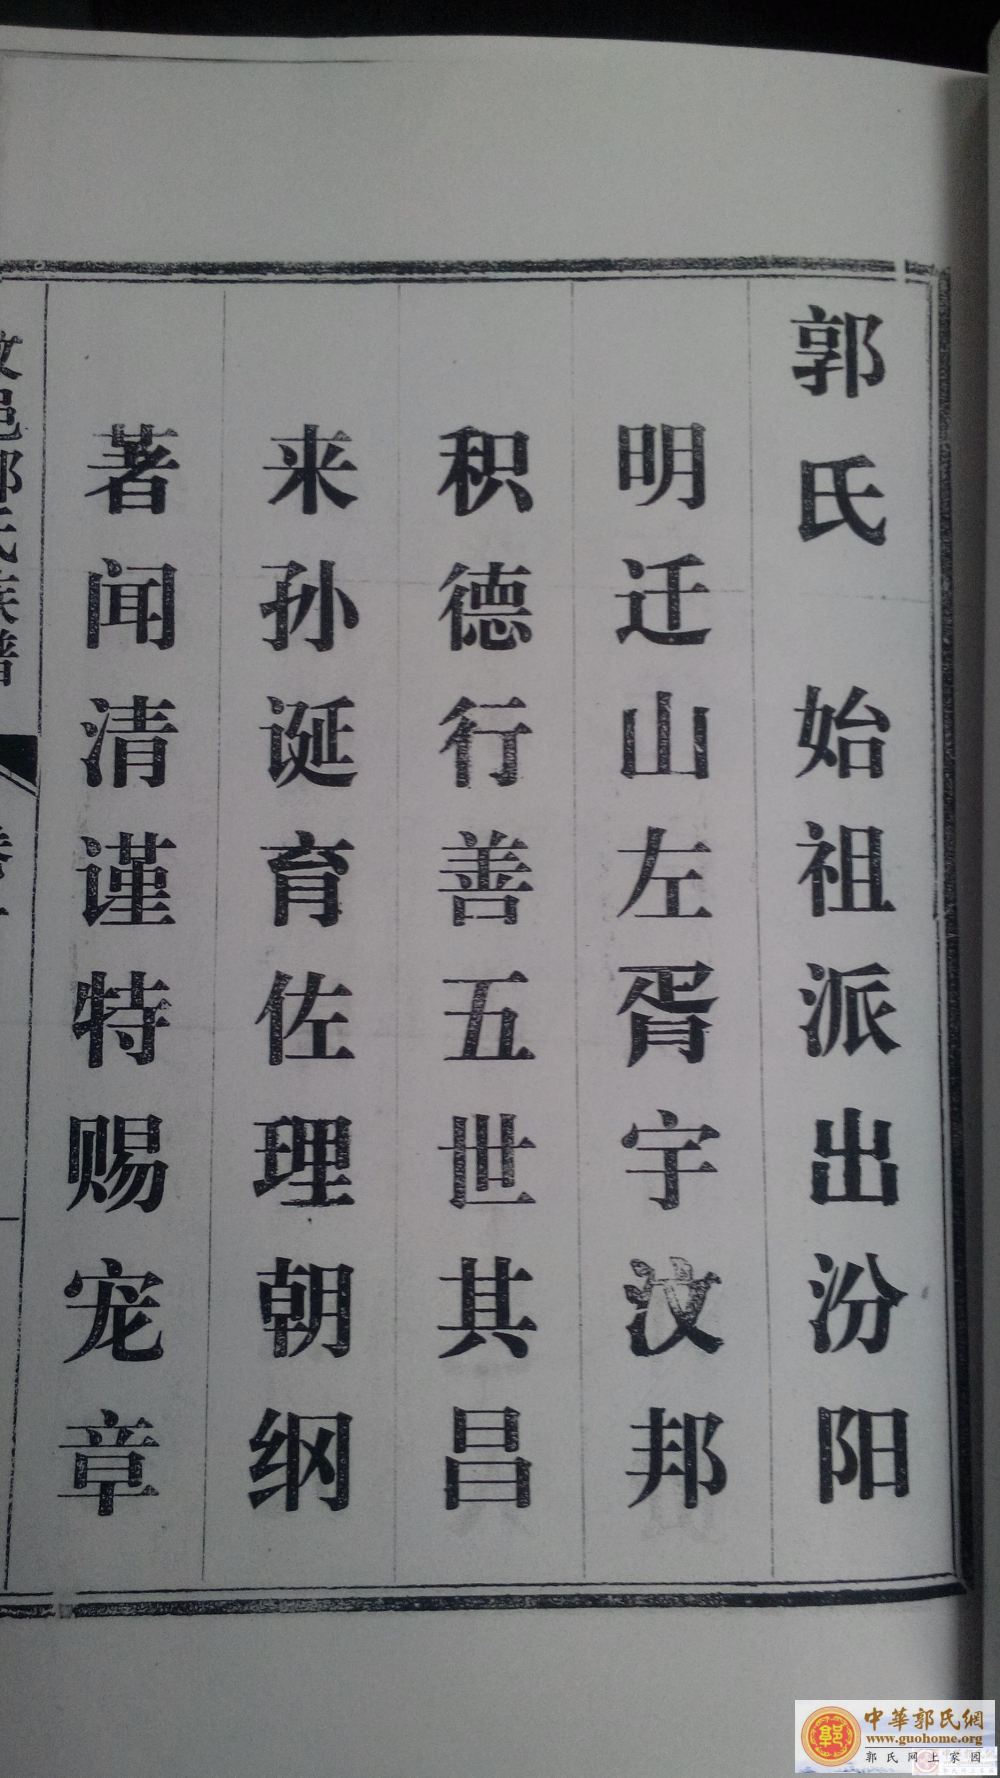 郭氏 始祖派出汾阳
明迁山左胥宇汶邦
积德行善五世其昌
来孙诞育佐理朝纲
著闻清谨特赐宠章
汶邑郭氏族谱
中華郭氏網
www.guohome.org
郭氏网上家园